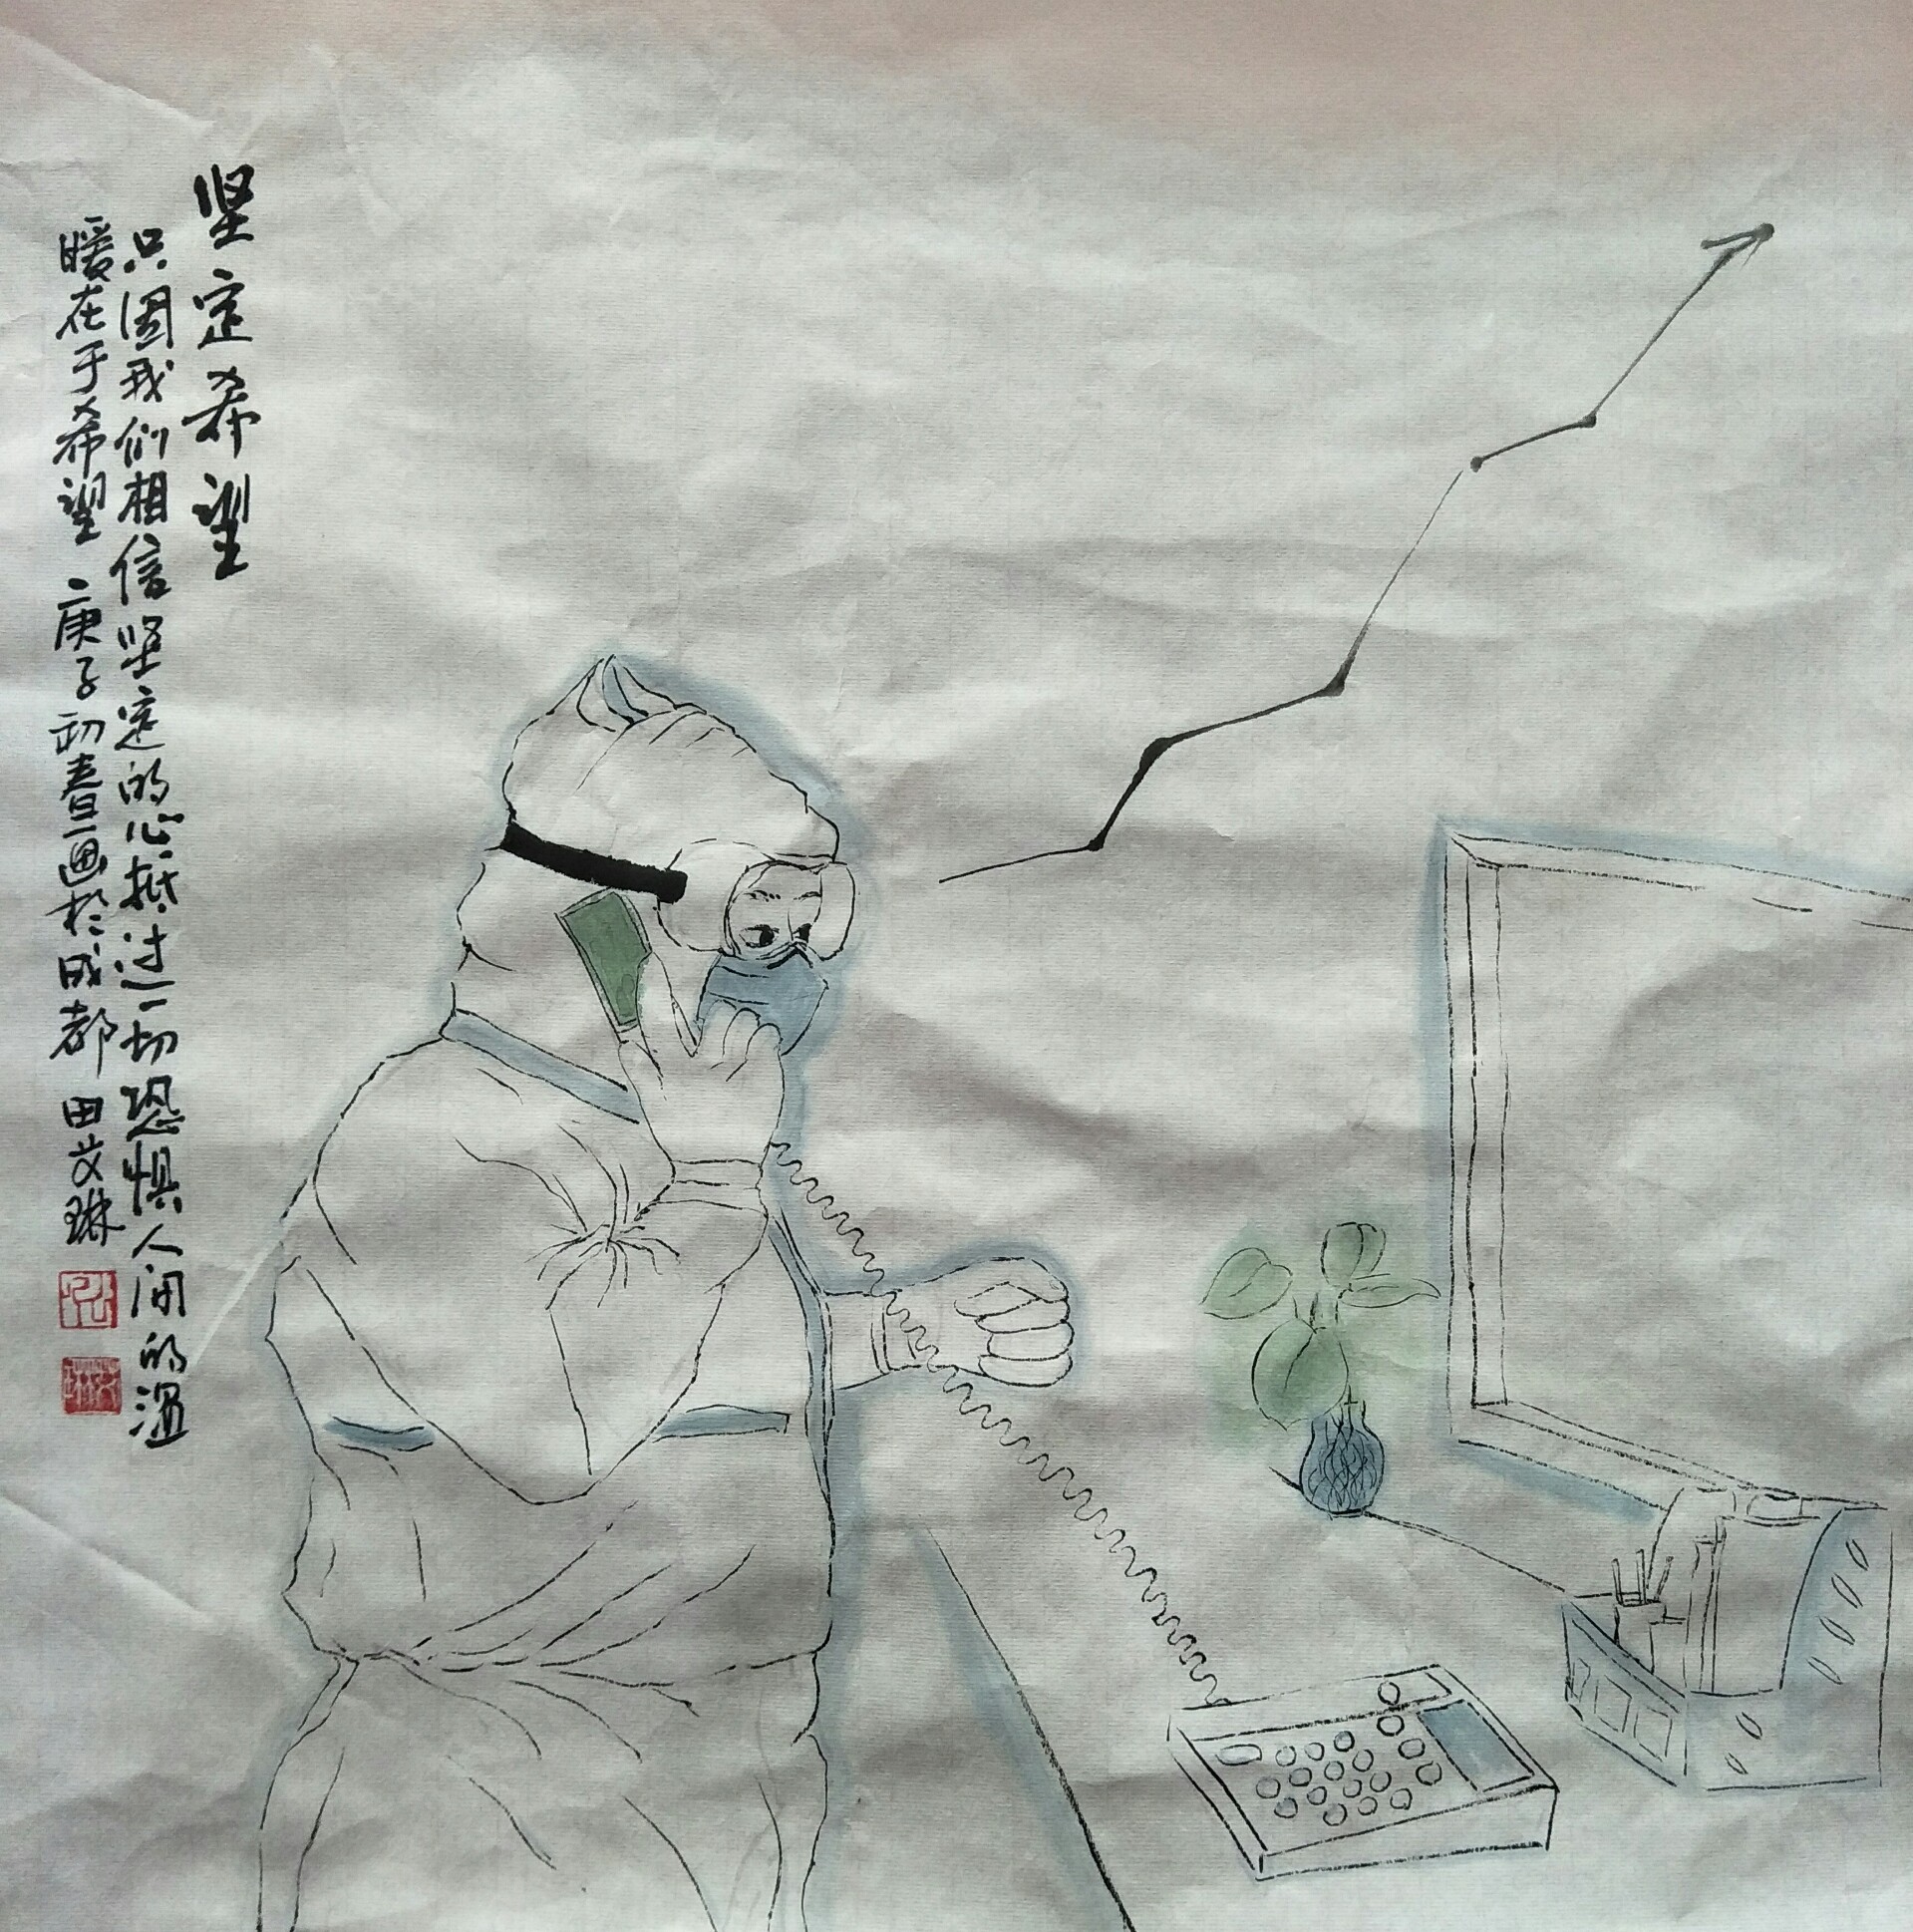 坚定希望
只因我们相信坚定的心抵过一切恐惧人间的温
暖在于希望 庚子初春画於成都 田艾琳